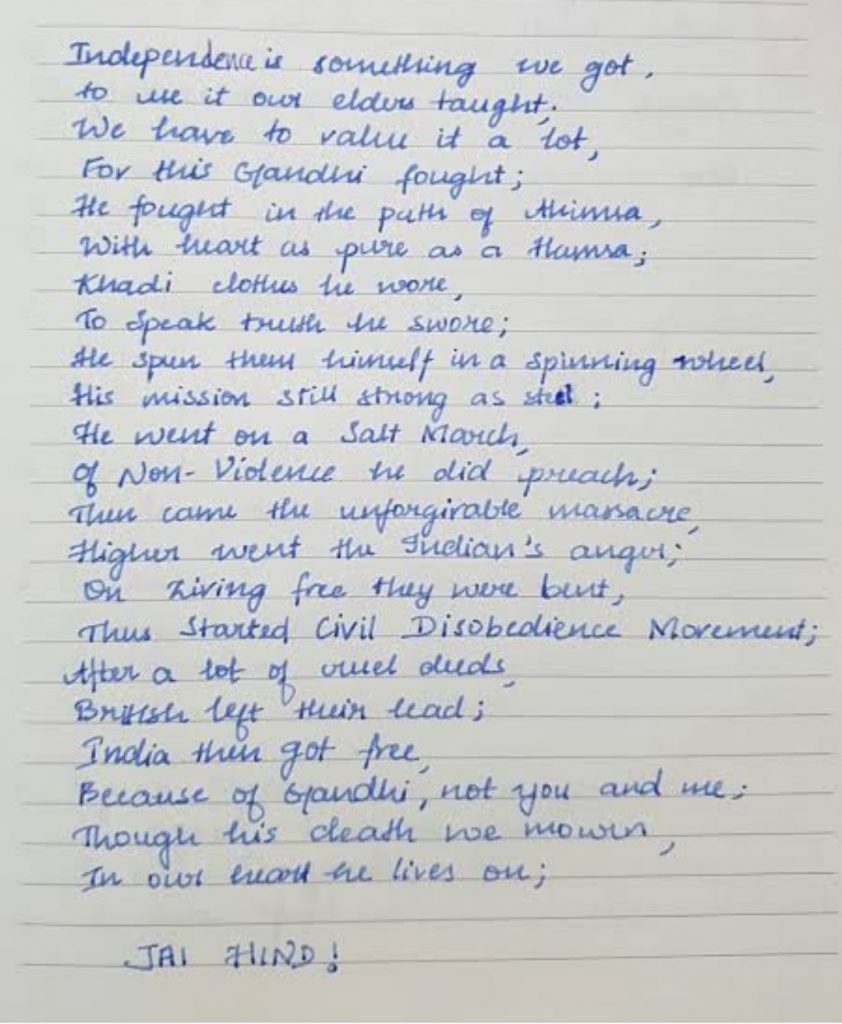 Independence is something we got,
to use it our elders taught;
We have to value it a lot,
For this Gandhi fought;
He fought in the path of Ahimsa,
With heart as pure as a Hamsa;
Khadi clothes he wore,
To speak truth he swore;
He spun them himself in a spinning wheel,
His mission still strong as steel;
He went on a Salt March,
Of Non-Violence he did preach;
Then came the unforgivable massacre,
Higher went the Indian's anger;
On Living free they were bent,
Thus Started Civil Disobedience Movement;
After a lot of cruel deeds,
British left their lead;
India then got free,
Because of Gandhi, not you and me;
Though his death we mourn,
In our heart he lives on;
JAI HIND!